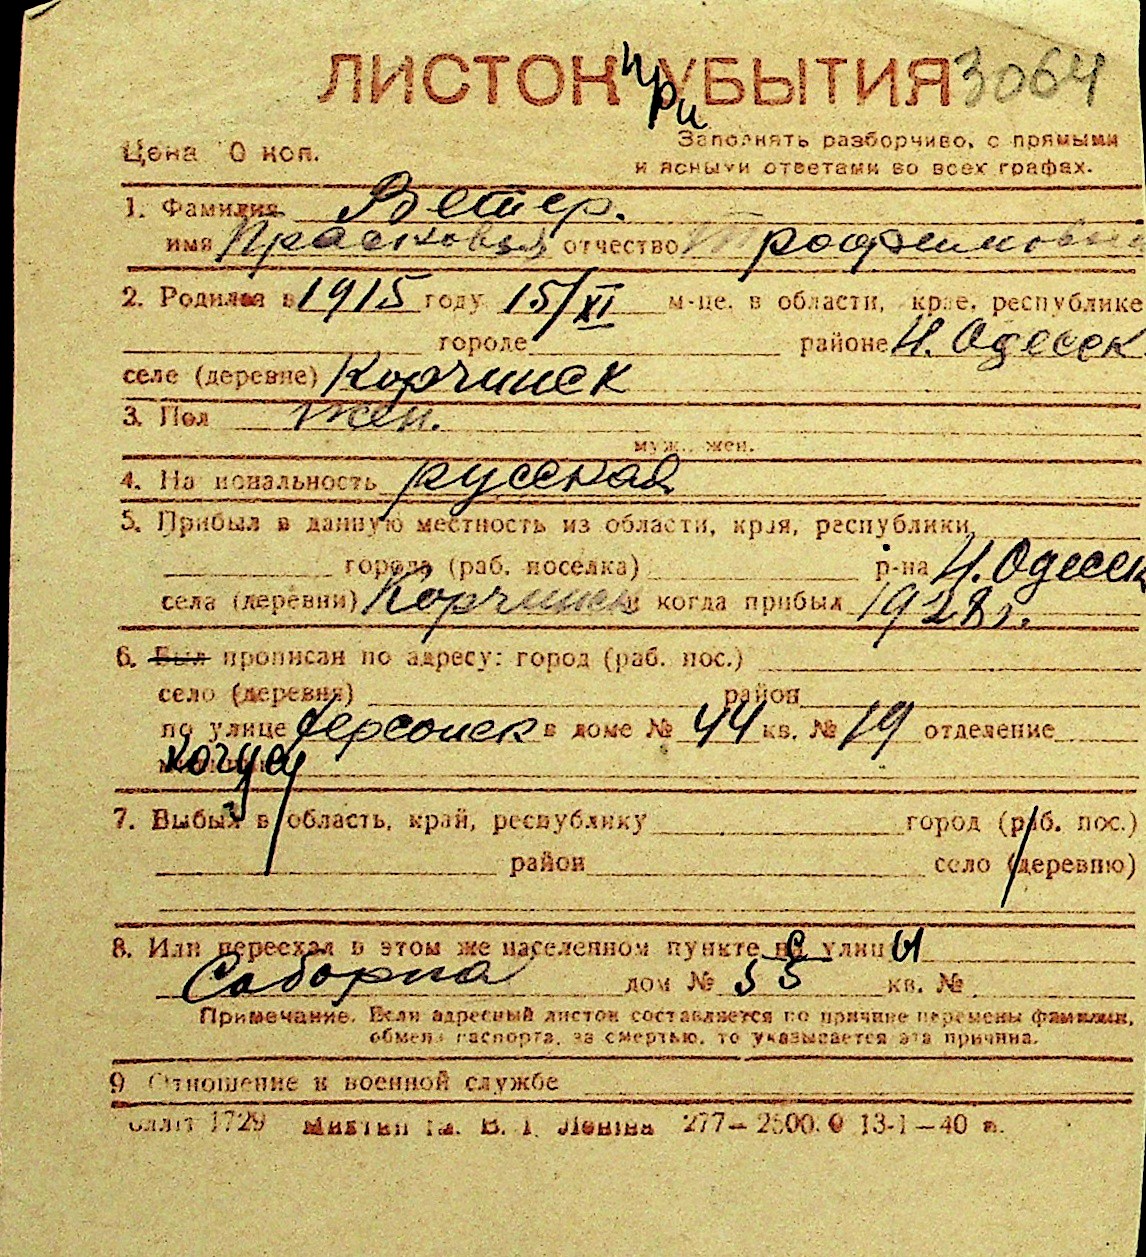 ЛИСТОК при УБЫТИЯ 3064
Цена 0 коп. Заполнять разборчиво, с прямыми
и ясными ответами во всех графах.
1. Фамилия Ветер.
имя Прасковья отчество Трофимовна
2. Родился в 1915 году 15/XI м-це, в области, крае, республике
городе районе Н. Одесск
селе (деревне) Корчинск
3. Пол жен.
муж., жен.
4. Национальность русская
5. Прибыл в данную местность из области, края, республики
города (раб. поселка) р-на Н. Одесск
села (деревни) Корчинск и когда прибыл 1928 г.
6. Был прописан по адресу: город (раб. пос.)
село (деревня) район
по улице Херсонск в доме № 44 кв. № 19 отделение
7. Выбыл в область, край, республику город (раб. пос.)
район село (деревню)
8. Или переехал в этом же населенном пункте с улицы
Саборна дом № 55 кв. №
Примечание. Если адресный листок составляется по причине перемены фамилии,
обмена паспорта, за смертью, то указывается эта причина.
9 Отношение к военной службе
1729 В. І. Леніна 277–2500. 0 13-1–40 в.